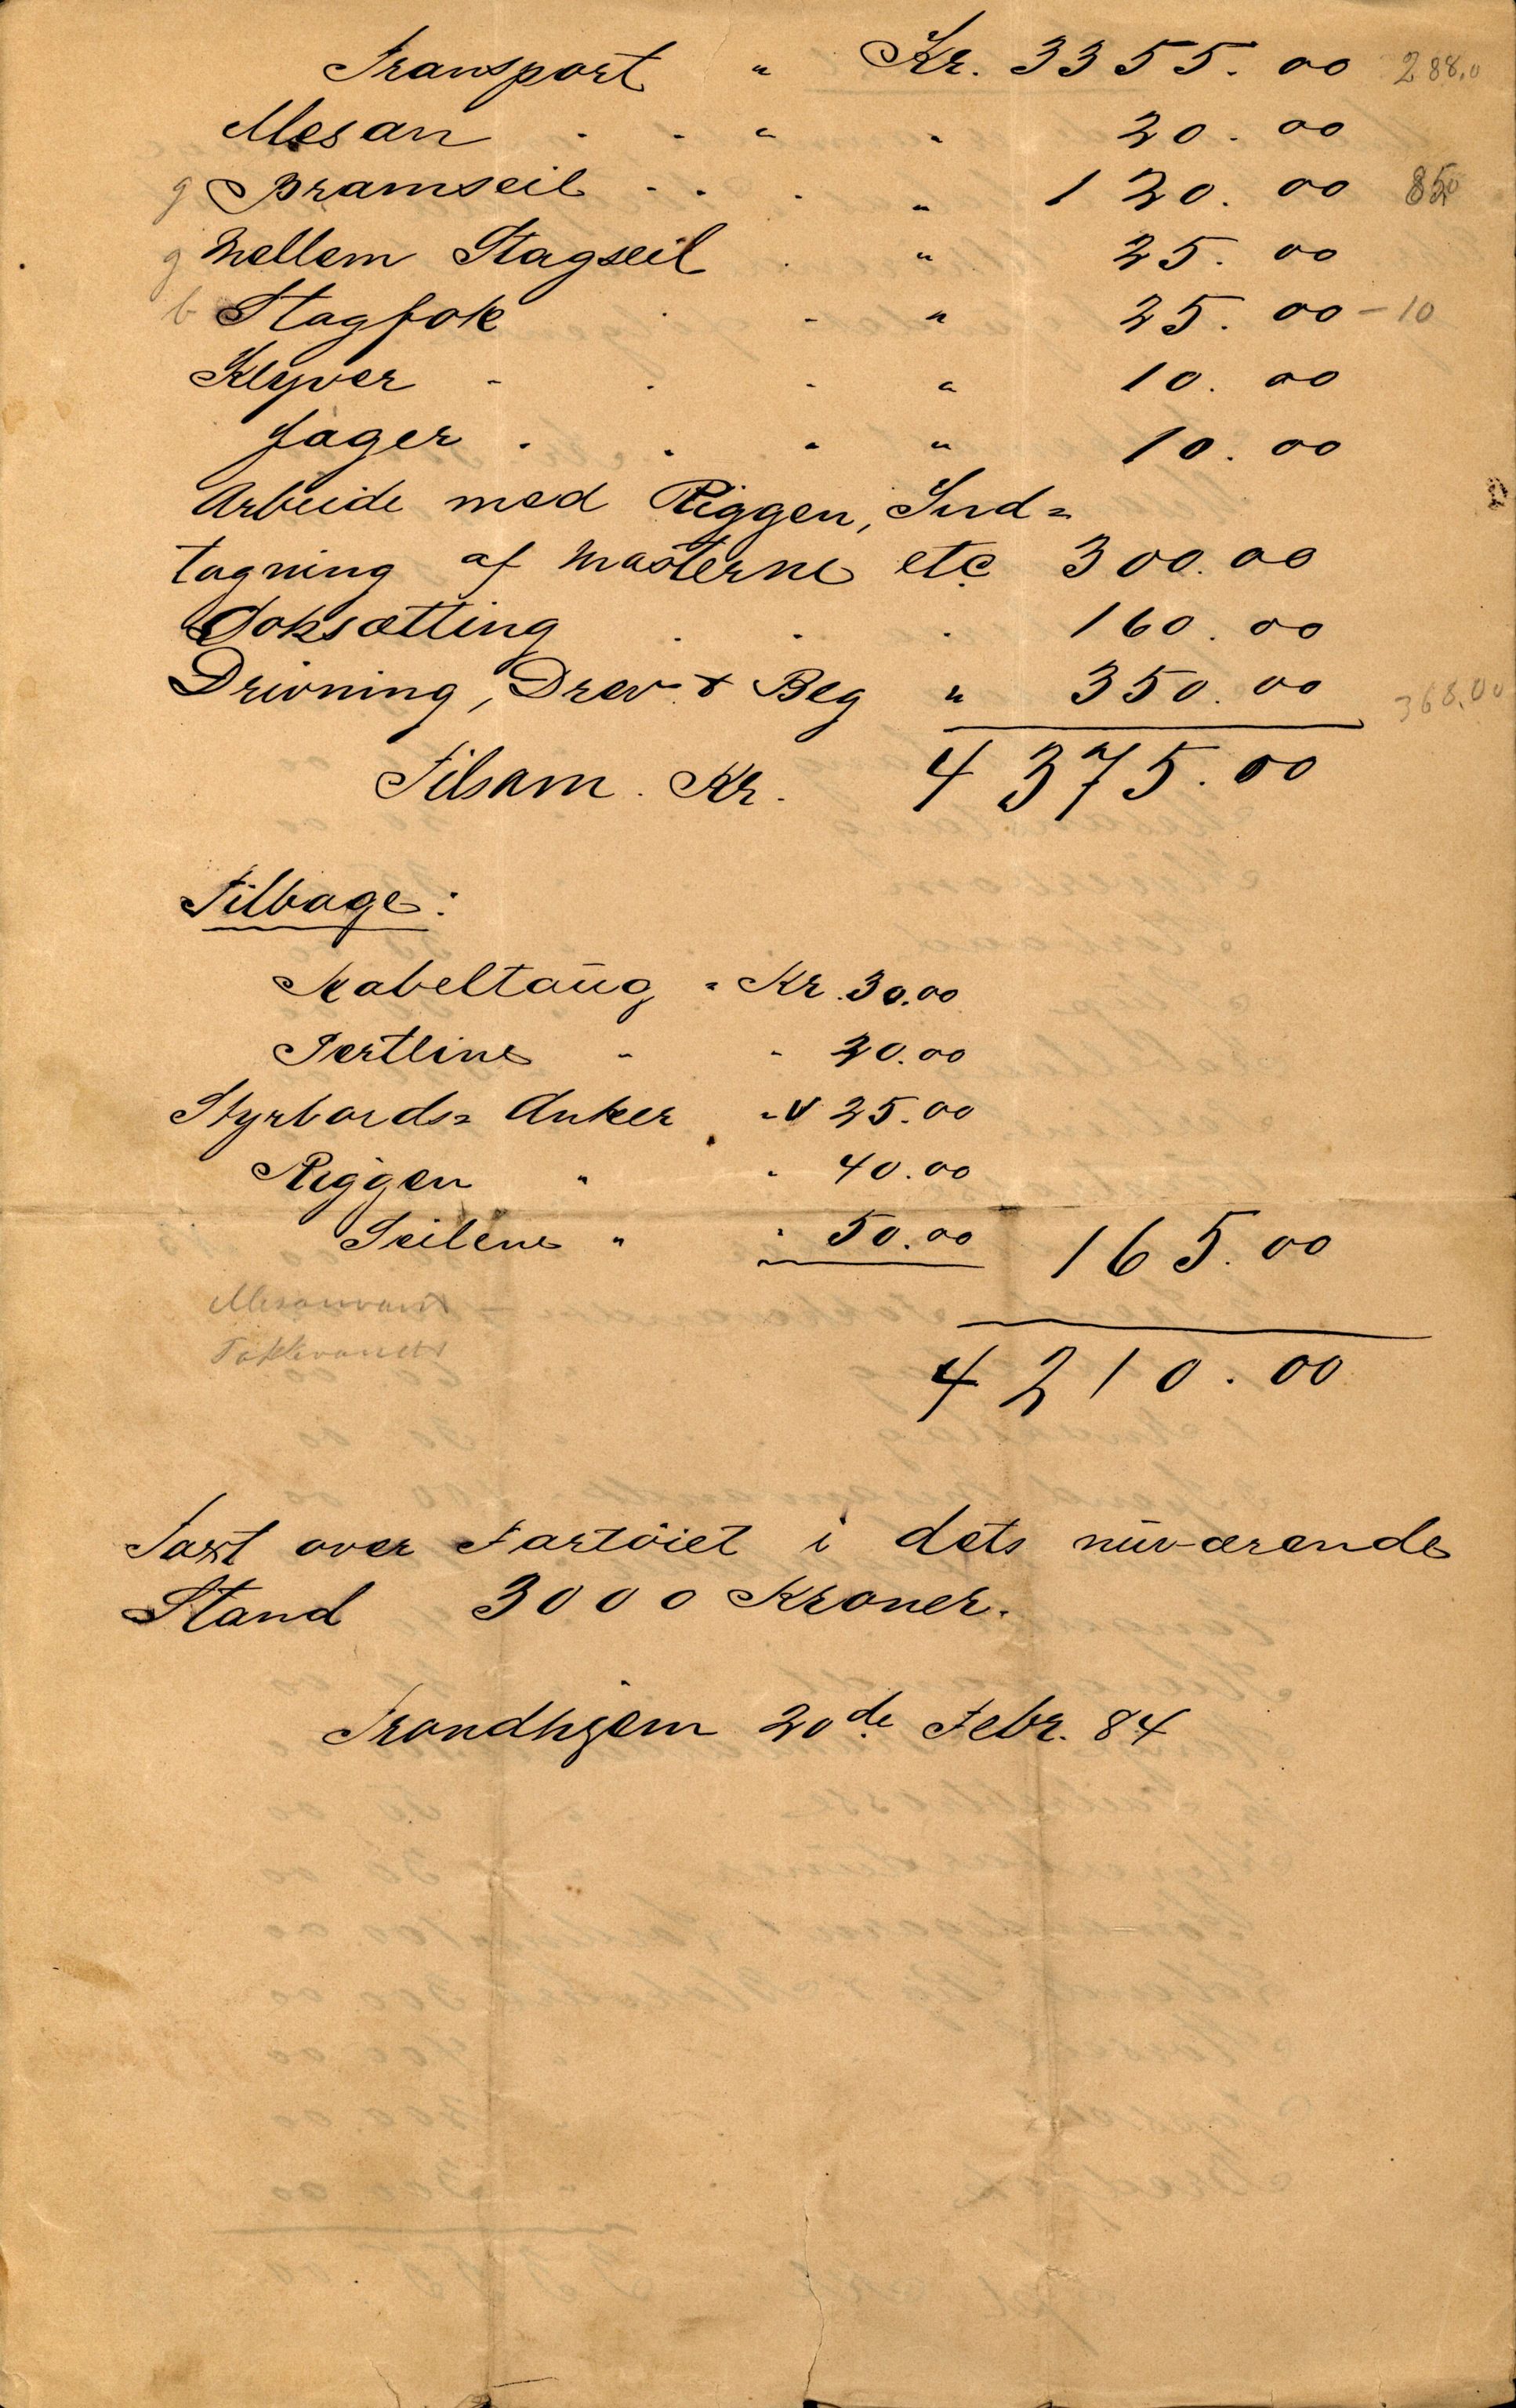 Transport " Kr. 3355.00 288.0
Mesan " 20.00
g Bramseil " 120.00 85
g Mellem Stagseil " 25.00
b Stagfok " 25.00 - 10
Klyver " 10.00
Jager " 10.00
Arbeide med Riggen, Ind=
tagning af Masterne etc 300.00
Doksætting 160.00
Drivning, Drev & Beg " 350.00 368.00
Tilsam. Kr. 4375.00
Tilbage:
Kabeltaug " Kr. 30.00
Pertline " " 20.00
Styrbords= Anker " 25.00
Riggen " " 40.00
Seilene " " 50.00 165.00
Mesanvant
4210.00
Taxt over Fartöiet i dets nuværende
Stand 3000 Kroner.
Trondhjem 20de Febr. 84